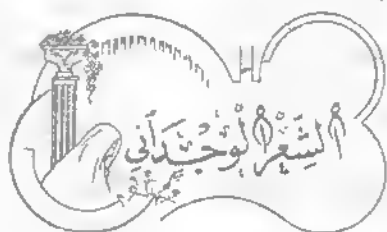 الشعر الوجداني